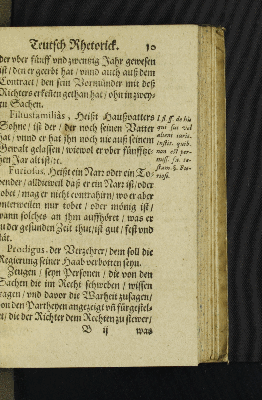 Teutsch Rhetorick. 10
der vber fünff vnd zwentzig Jahr gewesen
ist / den er geerbt hat / vnnd auch auß dem
Contract / den sein Vormünder mit deß
Richters erkeñen gethan hat / ohn in zwey-
en Sachen.
Filiusfamiliàs, Heißt Haußvatters
Sohne / ist der / der noch seinen Vatter
hat / vnnd er hat jhn noch nie auß seinem
Gewalt gelassen / wiewol er vber fünfftze-
hen Jar alt ist / ꝛc.
Furiosus. Heißt ein Narr oder ein To-
bender / alldieweil daß er ein Narꝛ ist / oder
tobet / mag er nicht contrahirn / wo er aber
vnterweilen nur tobet / oder mönig ist /
wann solches an jhm auffhöret / was er
zu der gesunden Zeit thut / ist gut / fest vnd
stät.
Prodigus. der Verzehrer / dem soll die
Regierung seiner Haab verbotten seyn.
Zeugen / seyn Personen / die von den
Sachen die im Recht schweben / wissen
tragen / vnd davor die Warheit zusagen /
von den Partheyen angezeigt vñ fürgestel-
let / die der Richter dem Rechten zu stewer /
B ij was
gui sui vel
alieni iuris.
instit. quib.
non est per-